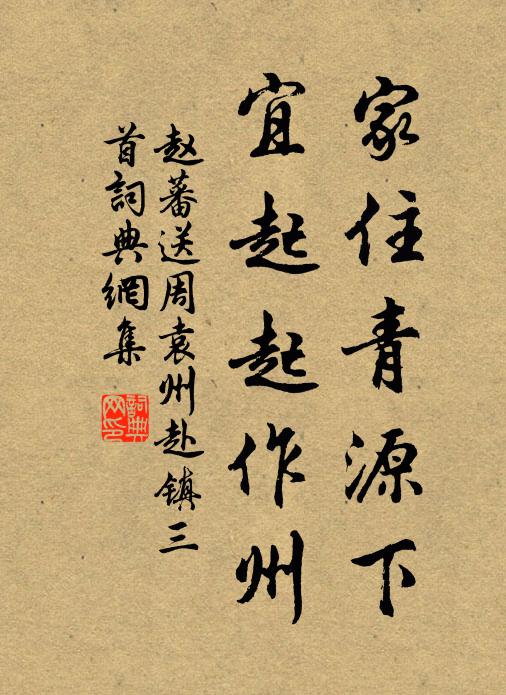 家住青源下
宜起起作州
赵蕃送周袁州赴镇三
首詞典網集
詞典
网印